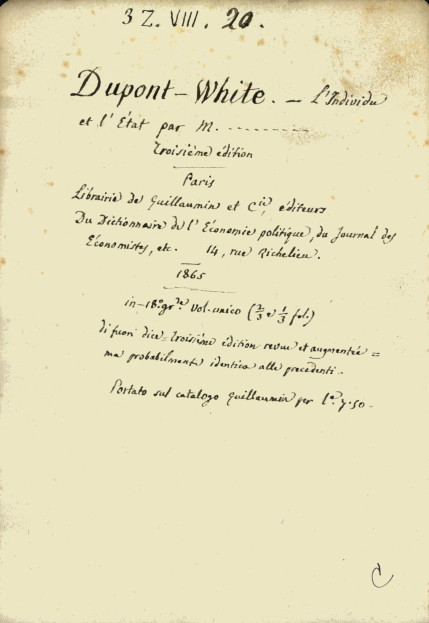 3 Z. VIII. 20.
Dupont-White. — L'Individu
et l'État par M. ----------
Troisième édition
Paris
Librairie de Guillaumin et Cie, éditeurs
Du Dictionnaire de l'Économie politique, du Journal des
Économistes, etc. 14, rue Richelieu.
1865
in-18° gr.de vol. unico (2/3 e 1/3 fol.)
di fuori dice = troisième édition revue et augmentée =
ma probabilmente identica alle precedenti.
Portato sul catalogo Guillaumin per l.e 3.50-